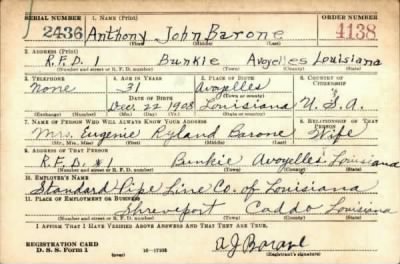 SERIAL NUMBER 1. NAME (Print) ORDER NUMBER
2436 Anthony John Barone 4138
(First) (Middle) (Last)
2. ADDRESS (Print)
R.F.D. 1 Bunkie Avoyelles Louisiana
(Number and street or R. F. D. number) (Town) (County) (State)
3. TELEPHONE 4. AGE IN YEARS 5. PLACE OF BIRTH 6. COUNTRY OF CITIZENSHIP
None 31 Avoyelles
DATE OF BIRTH (Town or county)
Dec. 22 1908 Louisiana U.S.A.
(Exchange) (Number) (Mo.) (Day) (Yr.) (State or country)
7. NAME OF PERSON WHO WILL ALWAYS KNOW YOUR ADDRESS 8. RELATIONSHIP OF THAT PERSON
Mrs. Eugenie Ryland Barone Wife
(Mr., Mrs., Miss) (First) (Middle) (Last)
9. ADDRESS OF THAT PERSON
R.F.D. #1 Bunkie Avoyelles Louisiana
(Number and street or R. F. D. number) (Town) (County) (State)
10. EMPLOYER'S NAME
Standard Pipe Line Co. of Louisiana
11. PLACE OF EMPLOYMENT OR BUSINESS
Shreveport Caddo Louisiana
(Number and street or R. F. D. number) (Town) (County) (State)
I AFFIRM THAT I HAVE VERIFIED ABOVE ANSWERS AND THAT THEY ARE TRUE.
REGISTRATION CARD
D. S. S. Form 1 16—17105 A J Barone
(Registrant's signature)